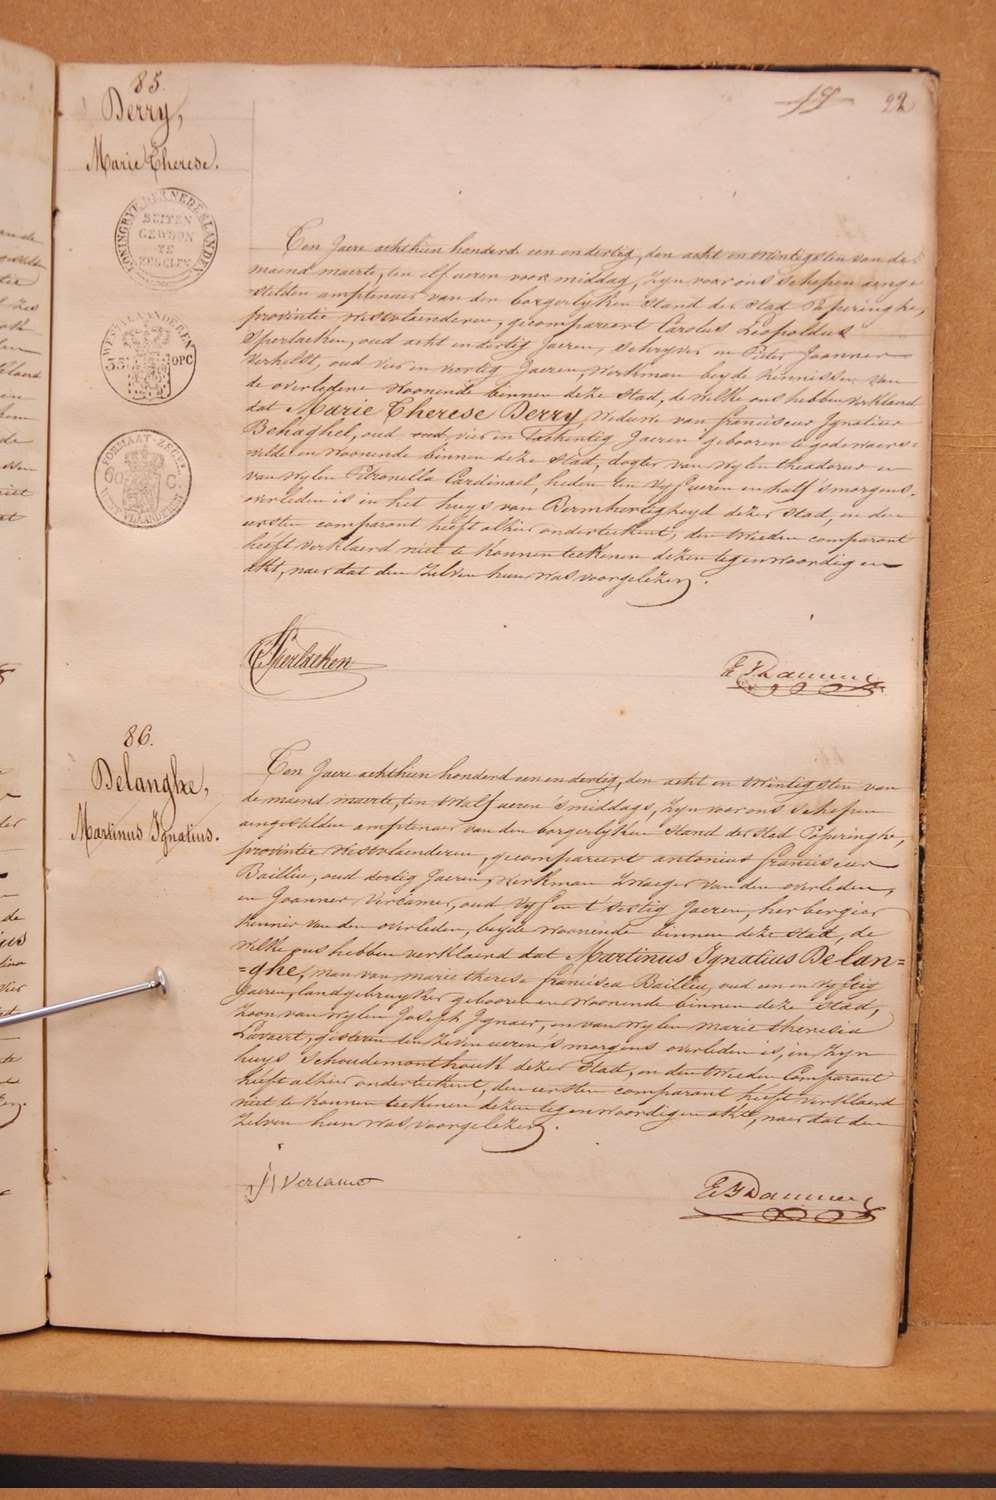 19 22
85.
Derry,
Marie Therese.
KONINGRYK DER NEDERLANDEN
BUITEN
GEWOON
TE
ZEGELEN
WEST-VLAANDEREN
35 OPC
FORMAAT-ZEGEL
60 C.
WEST-VLAANDEREN
Ten Jaere achthien honderd een en dertig, den acht en twintigsten van de
maend maerte, ten elf ueren voor middag, zyn voor ons schepen aenge-
stelden amptenaer van den borgerlyken stand der stad Poperinghe,
provintie Westvlaenderen, gecompareert Carolus Leopoldus
Sperlaeken, oud acht en dertig Jaeren, schryver en Pieter Joannes
Verhilst, oud vier en vortig Jaeren, werkman beyde kennissen van
de overledene woonende binnen deze stad, de welke ons hebben verklaerd
dat Marie Therese Derry, weduwe van franciscus Ignatius
Behaghel, oud vier en tachentig Jaeren gebooren te godewaers-
velde en woonende binnen deze stad, dogter van wylen theodorus en
van wylen Petronella Cardinael, heden ten vyf ueren en half smorgens,
overleden is in het huys van Bermhertigheyd dezer stad, en den
eersten comparant heeft alhier onderteekent, den tweeden comparant
heeft verklaerd niet te konnen teekenen dezen tegenwoordigen
akt, naer dat den zelven hun was voorgelezen.
C Sperlaeken
86.
Delanghe,
Martinus Ignatius.
Ten Jaere achthien honderd een en dertig, den acht en twintigsten van
de maend maerte, ten twalf ueren 's middags, zyn voor ons schepen
aengestelden amptenaer van den borgerlyken stand der stad Poperinghe,
provintie Westvlaenderen, gecompareert antonius franciscus
Baillieu, oud dertig Jaeren, werkman zwaeger van den overleden,
en Joannes Vercamer, oud vyf en t'sestig Jaeren, herbergier
kennis van den overleden, beyde woonende binnen deze stad, de
welke ons hebben verklaerd dat Martinus Ignatius Delan=
=ghe, man van marie therese francisca Baillieu, oud een en vyftig
Jaeren, landgebruyker gebooren en woonende binnen deze stad,
zoon van wylen Joseph Ignaes, en van wylen marie theresia
Lavaert, gisteren ten zeven ueren 's morgens overleden is, in zyn
huys Schoudemonthouk dezer stad, en den tweeden Comparant
heeft alhier onderteekent, den eersten comparant heeft verklaerd
niet te konnen teekenen dezen tegenwoordigen akt, naer dat den
zelven hun was voorgelezen.